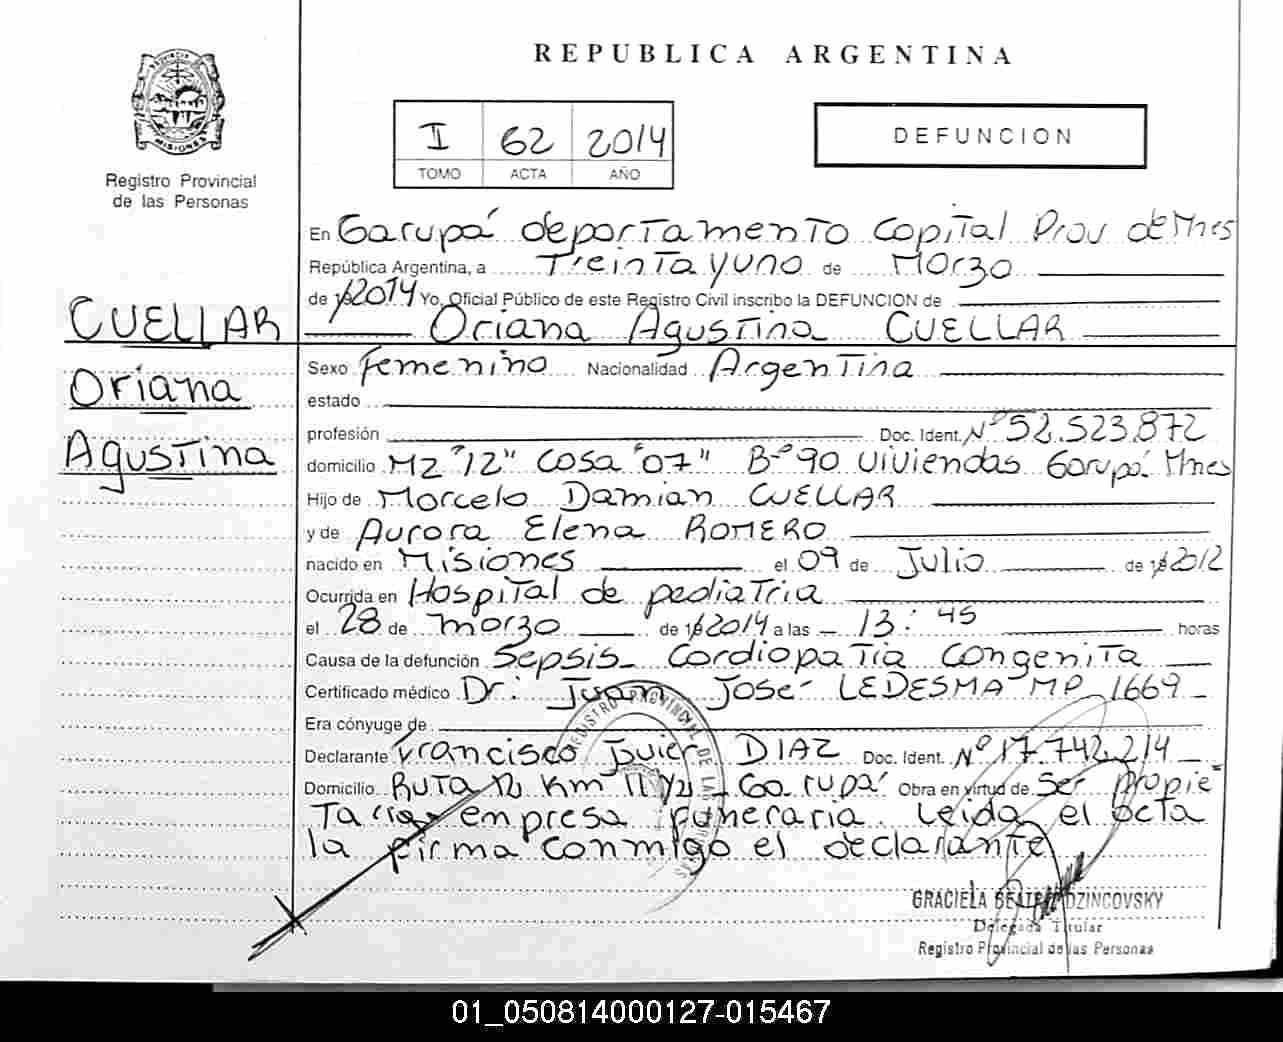 REPUBLICA ARGENTINA
MISIONES
Registro Provincial
de las Personas
I 62 2014
TOMO ACTA AÑO
DEFUNCION
En Garupá departamento Capital Prov de Mnes
República Argentina, a Treinta y uno de Marzo
de 2014 Yo, Oficial Público de este Registro Civil inscribo la DEFUNCION de
CUELLAR
Oriana Agustina CUELLAR
Oriana
Agustina
Sexo Femenino Nacionalidad Argentina
estado
profesión Doc. Ident. Nº 52.523.872
domicilio Mz "12" Casa "07" Bº 90 viviendas Garupá Mnes
Hijo de Marcelo Damian CUELLAR
y de Aurora Elena ROMERO
nacido en Misiones el 09 de Julio de 2012
Ocurrida en Hospital de pediatria
el 28 de marzo de 2014 a las 13:45 horas
Causa de la defunción Sepsis - Cardiopatia Congenita
Certificado médico Dr: Juan José LEDESMA MP 1669
Era cónyuge de
Declarante Francisco Javier DIAZ Doc. Ident. Nº 17.742.214
Domicilio Ruta 12 Km 11 1/2 - Garupá Obra en virtud de Ser propie
Tario empresa funeraria. Leida el acta
la firma conmigo el declarante
REGISTRO PROVINCIAL DE LAS PERSONAS
GRACIELA BEATRIZ DZINCOVSKY
Delegada Titular
Registro Provincial de las Personas
01_050814000127-015467